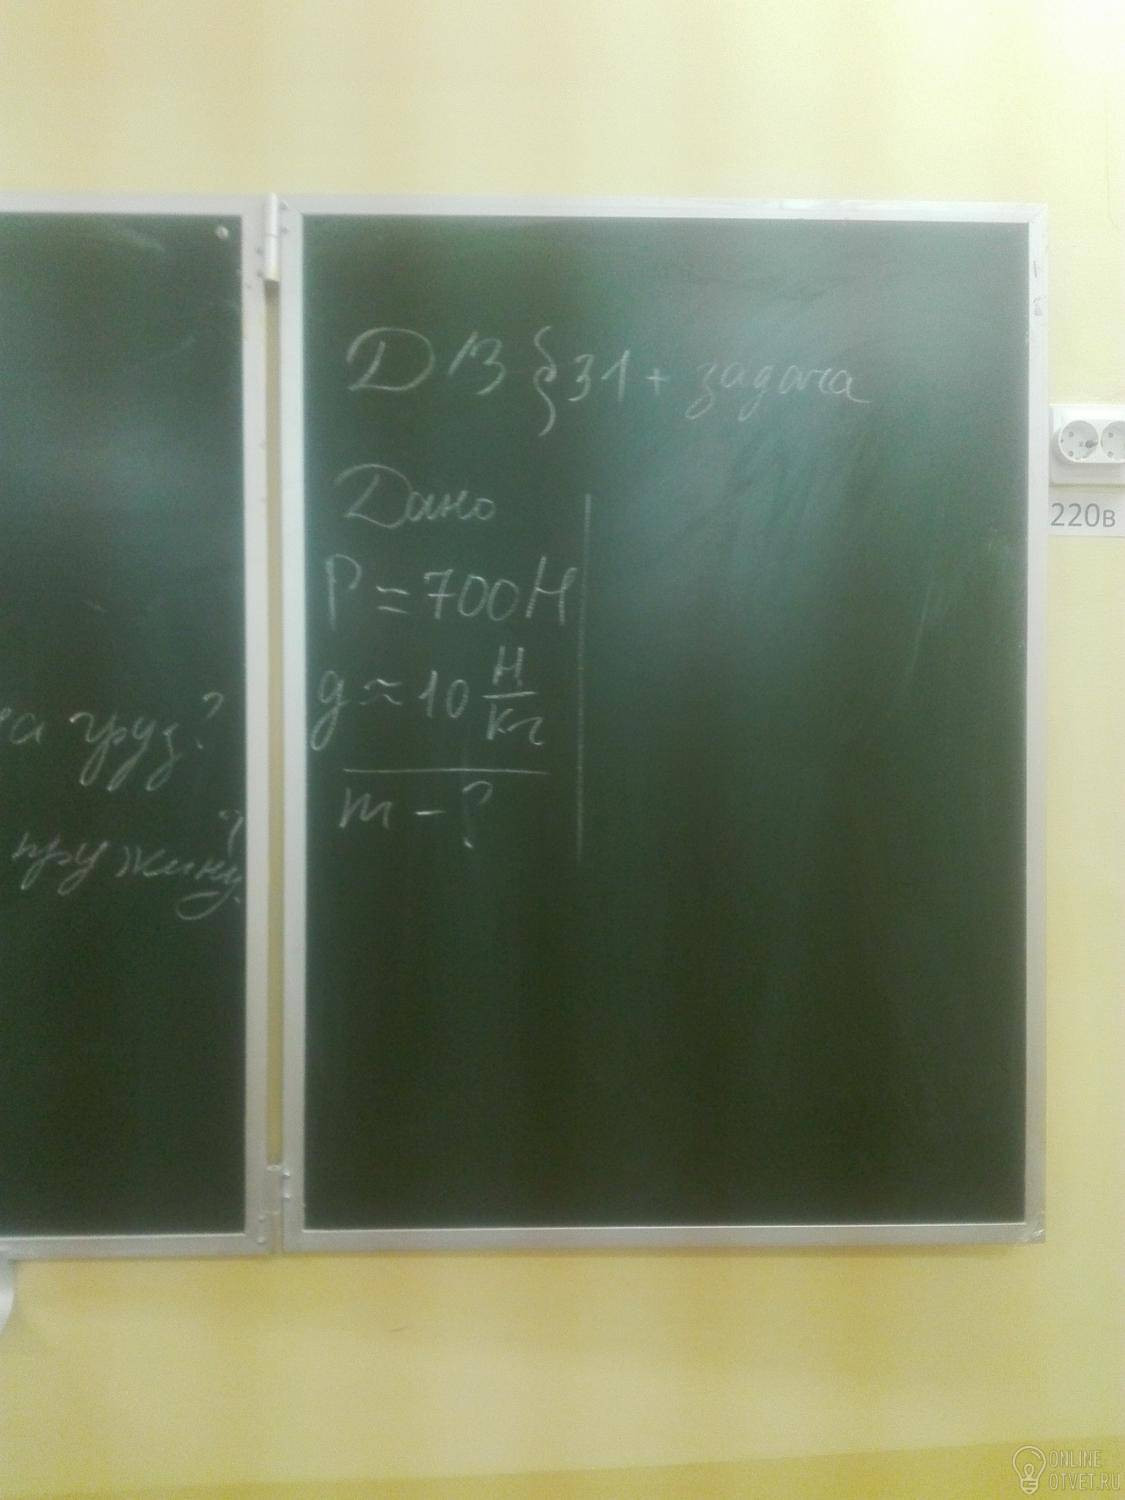 груз?
пружину?
Д/З § 31 + задача
Дано
P = 700 Н
g ≈ 10 Н/кг
m - ?
220В
ONLINE
OTVET.RU